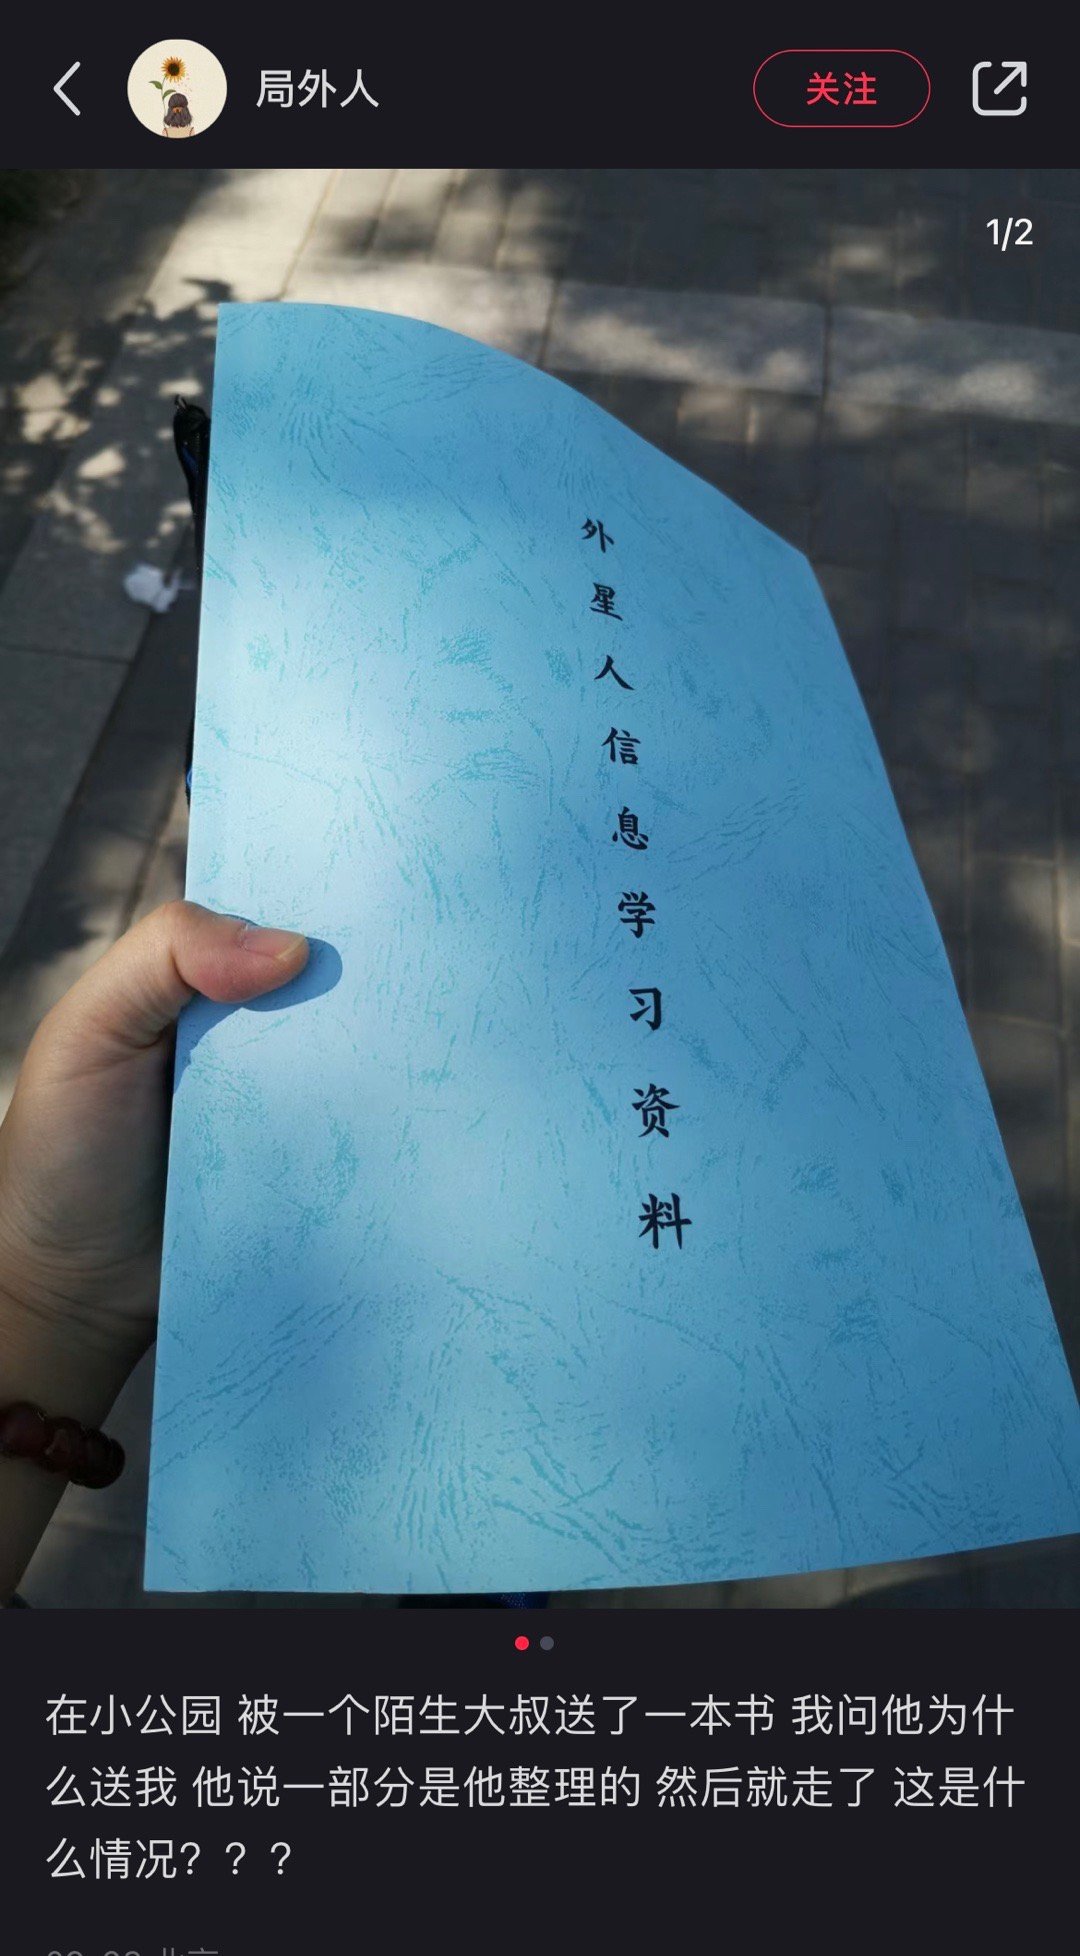 局外人
关注
1/2
外星人信息学习资料
在小公园 被一个陌生大叔送了一本书 我问他为什
么送我 他说一部分是他整理的 然后就走了 这是什
么情况？？？